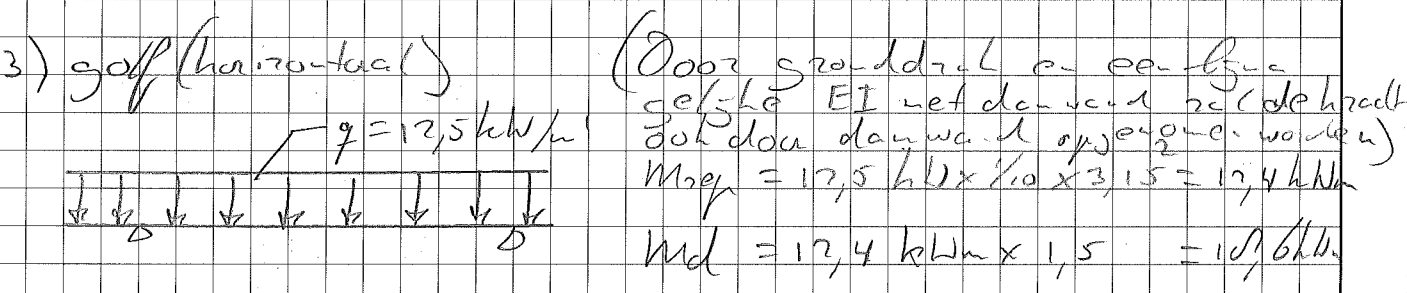 3) golf (horizontaal)
q = 12,5 kN/m
(Door gronddruk en een bijna
gelijke EI met damwand zal de kracht
ook door damwand opgenomen worden)
Mrep = 12,5 kN x 1/10 x 3,15² = 12,4 kNm
Md = 12,4 kNm x 1,5 = 18,6 kNm